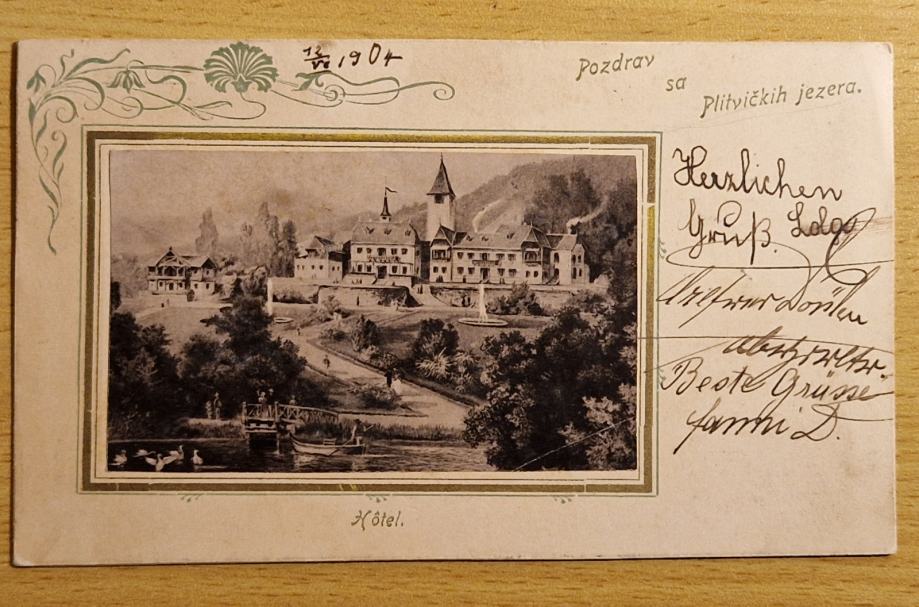 12/VI 1904
Pozdrav
sa
Plitvičkih jezera.
Herzlichen
Gruß.
Beste Grüsse
fanni D.
Hôtel.